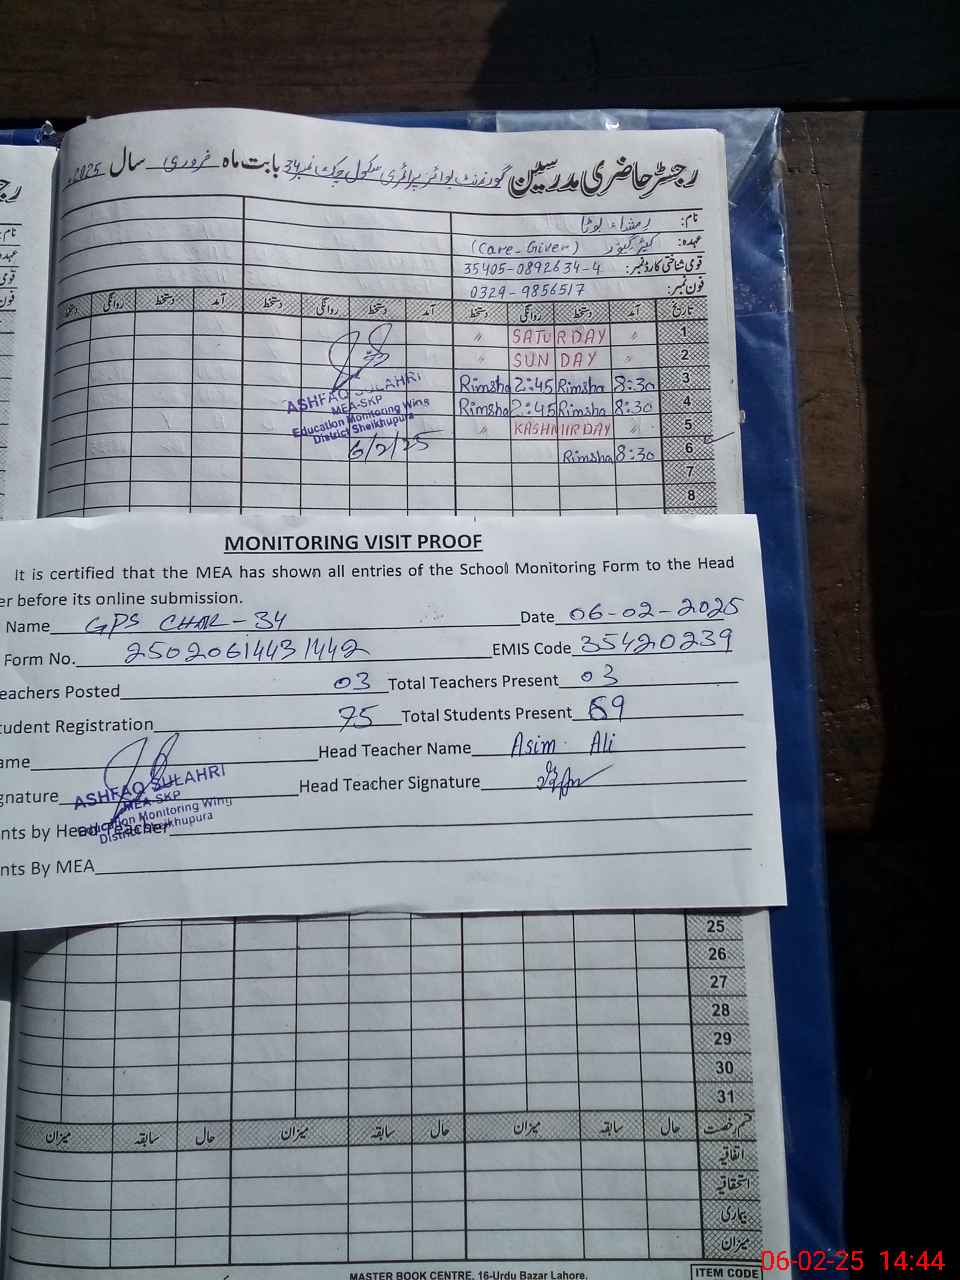 رجسٹر حاضری مدرسین گورنمنٹ بوائز پرائمری سکول چک نمبر 34 بابت ماہ فروری سال 2025ء
نام:
عہدہ: کیئر گیور (Care-Giver)
قومی شناختی کارڈ نمبر: 35405-0892634-4
فون نمبر: 0329-9856517
تاریخ آمد دستخط روانگی دستخط آمد دستخط روانگی دستخط آمد دستخط روانگی دستخط
1 " SATURDAY "
2 " SUNDAY "
3 8:30 Rimsha 2:45 Rimsha
4 8:30 Rimsha 2:45 Rimsha
5 " KASHMIR DAY "
6 8:30 Rimsha
7
8
ASHFAQ SULAHRI
MEA-SKP
Education Monitoring Wing
District Sheikhupura
6/2/25
MONITORING VISIT PROOF
It is certified that the MEA has shown all entries of the School Monitoring Form to the Head
er before its online submission.
Name GPS CHAK-34 Date 06-02-2025
Form No. 25020614431442 EMIS Code 35420239
eachers Posted 03 Total Teachers Present 03
tudent Registration 75 Total Students Present 69
ame Head Teacher Name Asim Ali
gnature Head Teacher Signature
ASHFAQ SULAHRI
MEA-SKP
Education Monitoring Wing
District Sheikhupura
nts by Head Teacher
nts By MEA
25
26
27
28
29
30
31
قسم رخصت حال سابقہ میزان حال سابقہ میزان حال سابقہ میزان
اتفاقیہ
استحقاقیہ
بیماری
میزان
MASTER BOOK CENTRE, 16-Urdu Bazar Lahore.
ITEM CODE
06-02-25 14:44